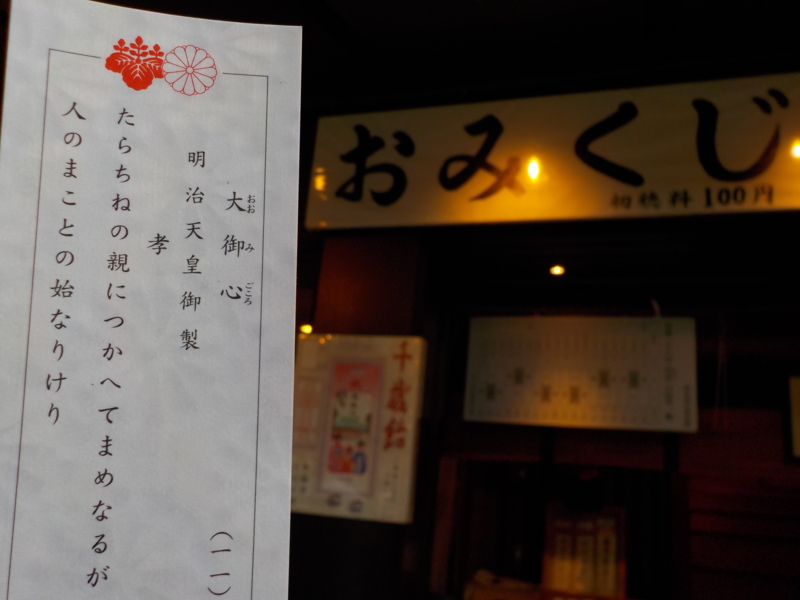 大御心
おおみごころ
明治天皇御製
孝
たらちねの親につかへてまめなるが
人のまことの始なりけり
（一一）
おみくじ
初穂料100円
千歳飴